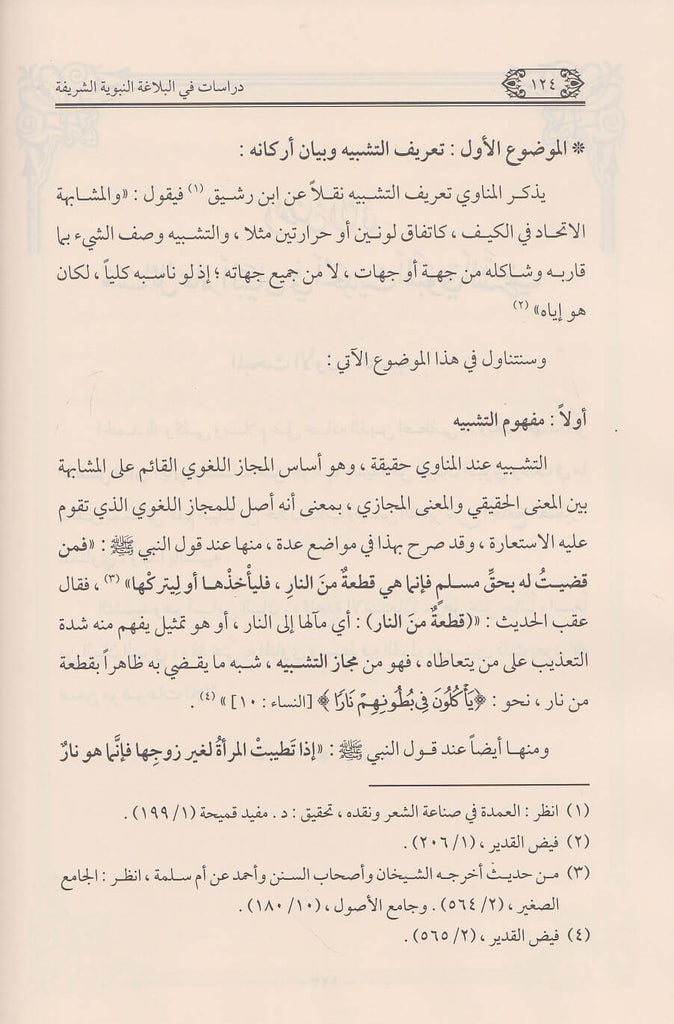 ١٢٤
دراسات في البلاغة النبوية الشريفة
* الموضوع الأول : تعريف التشبيه وبيان أركانه :
يذكر المناوي تعريف التشبيه نقلاً عن ابن رشيق (١) فيقول : «والمشابهة
الاتحاد في الكيف ، كاتفاق لونين أو حرارتين مثلا ، والتشبيه وصف الشيء بما
قاربه وشاكله من جهة أو جهات ، لا من جميع جهاته ؛ إذ لو ناسبه كلياً ، لكان
هو إياه» (٢)
وسنتناول في هذا الموضوع الآتي :
أولاً : مفهوم التشبيه
التشبيه عند المناوي حقيقة ، وهو أساس المجاز اللغوي القائم على المشابهة
بين المعنى الحقيقي والمعنى المجازي ، بمعنى أنه أصل للمجاز اللغوي الذي تقوم
عليه الاستعارة ، وقد صرح بهذا في مواضع عدة ، منها عند قول النبي ﷺ : «فمن
قضيتُ له بحقِّ مسلمٍ فإنما هي قطعةٌ منَ النارِ ، فليأخذْها أو لِيتركْها» (٣) ، فقال
عقب الحديث : «(قطعةٌ منَ النار) : أي مآلها إلى النار ، أو هو تمثيل يفهم منه شدة
التعذيب على من يتعاطاه ، فهو من مجاز التشبيه ، شبه ما يقضي به ظاهراً بقطعة
من نار ، نحو : ﴿يَأْكُلُونَ فِي بُطُونِهِمْ نَارًا﴾ [النساء : ١٠] » (٤) .
ومنها أيضاً عند قول النبي ﷺ : «إذا تَطيبتْ المرأةُ لغيرِ زوجِها فإنَّما هو نارٌ
(١) انظر : العمدة في صناعة الشعر ونقده ، تحقيق : د . مفيد قميحة (١/ ١٩٩) .
(٢) فيض القدير ، (١/ ٢٠٦) .
(٣) من حديث أخرجه الشيخان وأصحاب السنن وأحمد عن أم سلمة ، انظر : الجامع
الصغير ، (٢/ ٥٦٤) . وجامع الأصول ، (١٠/ ١٨٠) .
(٤) فيض القدير ، (٢/ ٥٦٥) .